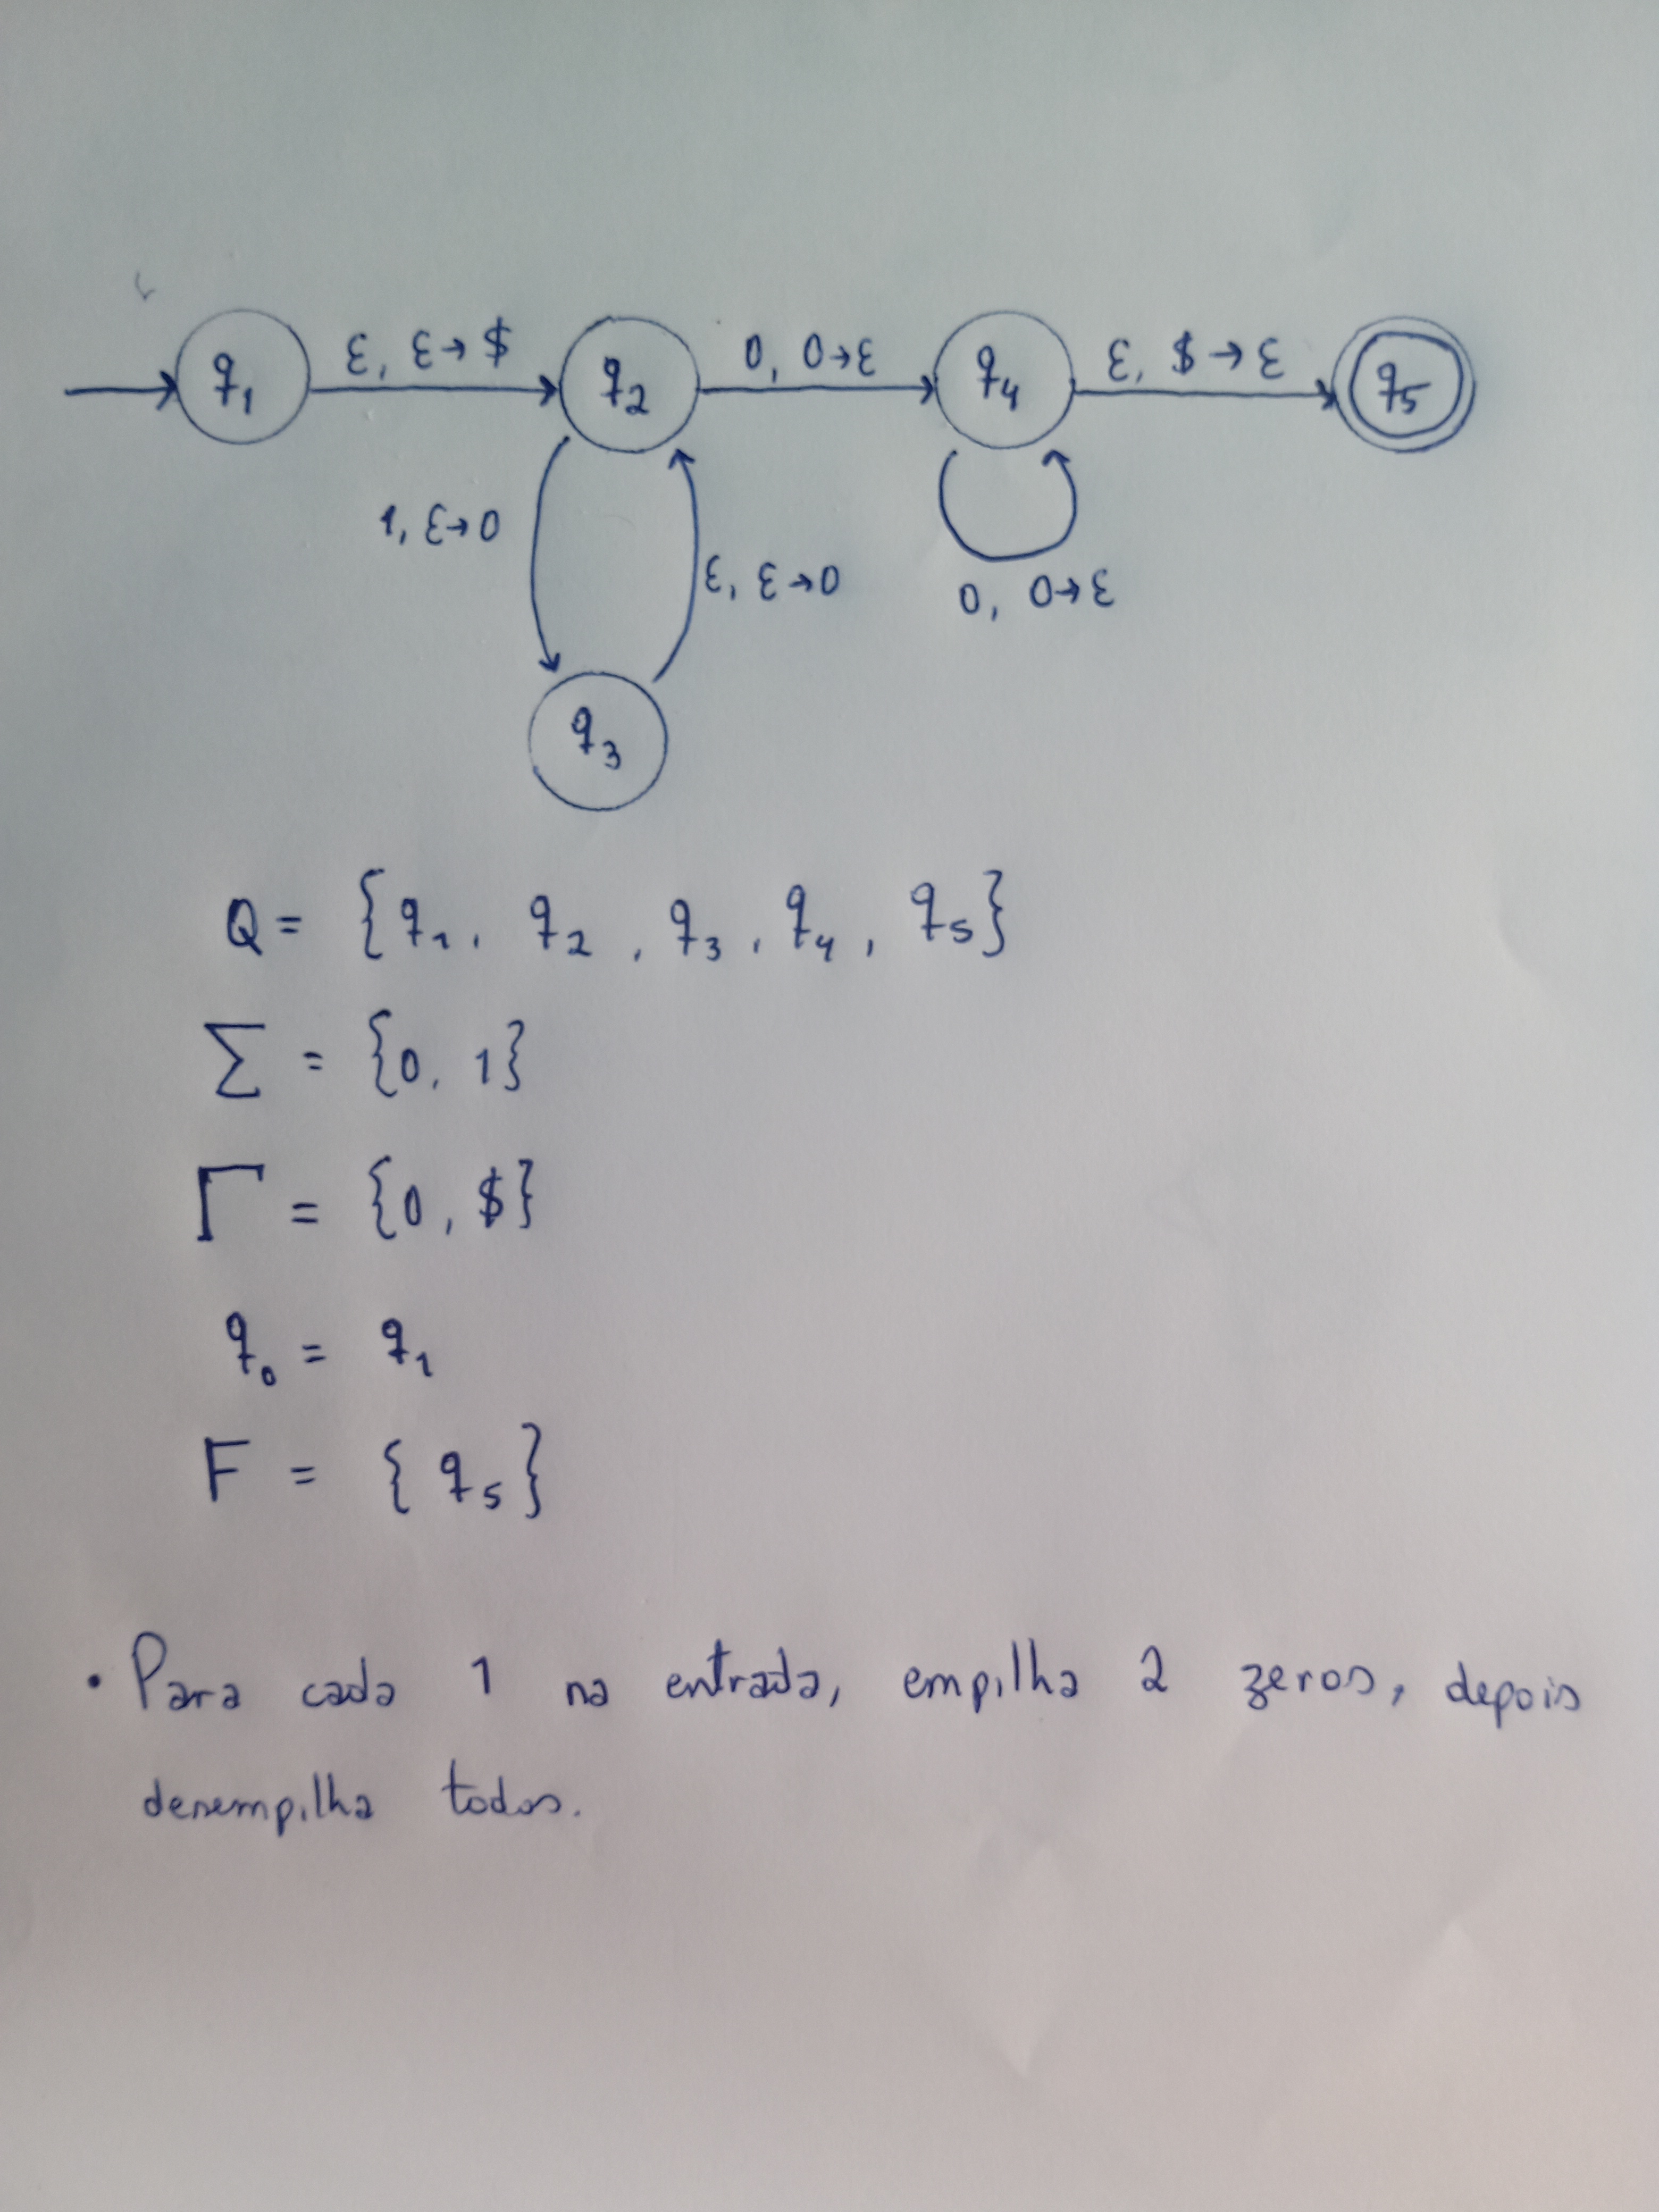 q₁ ε, ε→$ q₂ 0, 0→ε q₄ ε, $→ε q₅
1, ε→0
ε, ε→0
0, 0→ε
q₃
Q = {q₁, q₂, q₃, q₄, q₅}
Σ = {0, 1}
Γ = {0, $}
q₀ = q₁
F = {q₅}
• Para cada 1 na entrada, empilha 2 zeros, depois
desempilha todos.